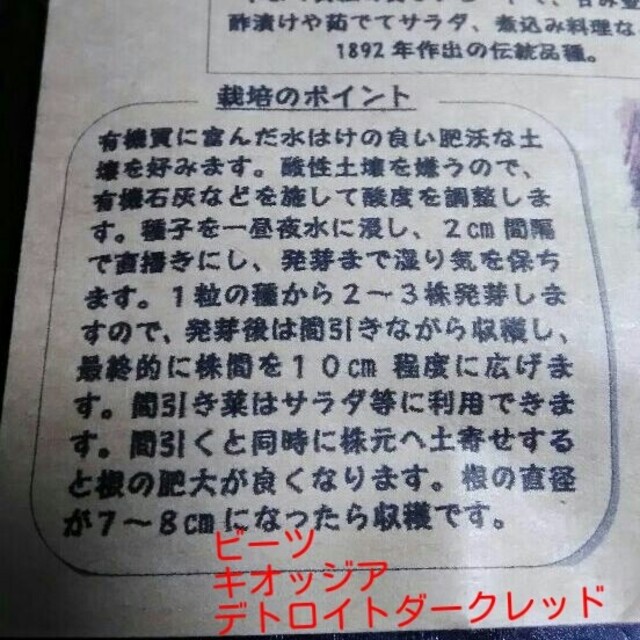 酢漬けや茹でてサラダ、煮込み料理な
1892年作出の伝統品種。
栽培のポイント
有機質に富んだ水はけの良い肥沃な土
壌を好みます。酸性土壌を嫌うので、
有機石灰などを施して酸度を調整しま
す。種子を一昼夜水に浸し、2cm間隔
で直播きにし、発芽まで湿り気を保ち
ます。1粒の種から2～3株発芽しま
すので、発芽後は間引きながら収穫し、
最終的に株間を10cm程度に広げま
す。間引き菜はサラダ等に利用できま
す。間引くと同時に株元へ土寄せする
と根の肥大が良くなります。根の直径
が7～8cmになったら収穫です。
ビーツ
キオッジア
デトロイトダークレッド